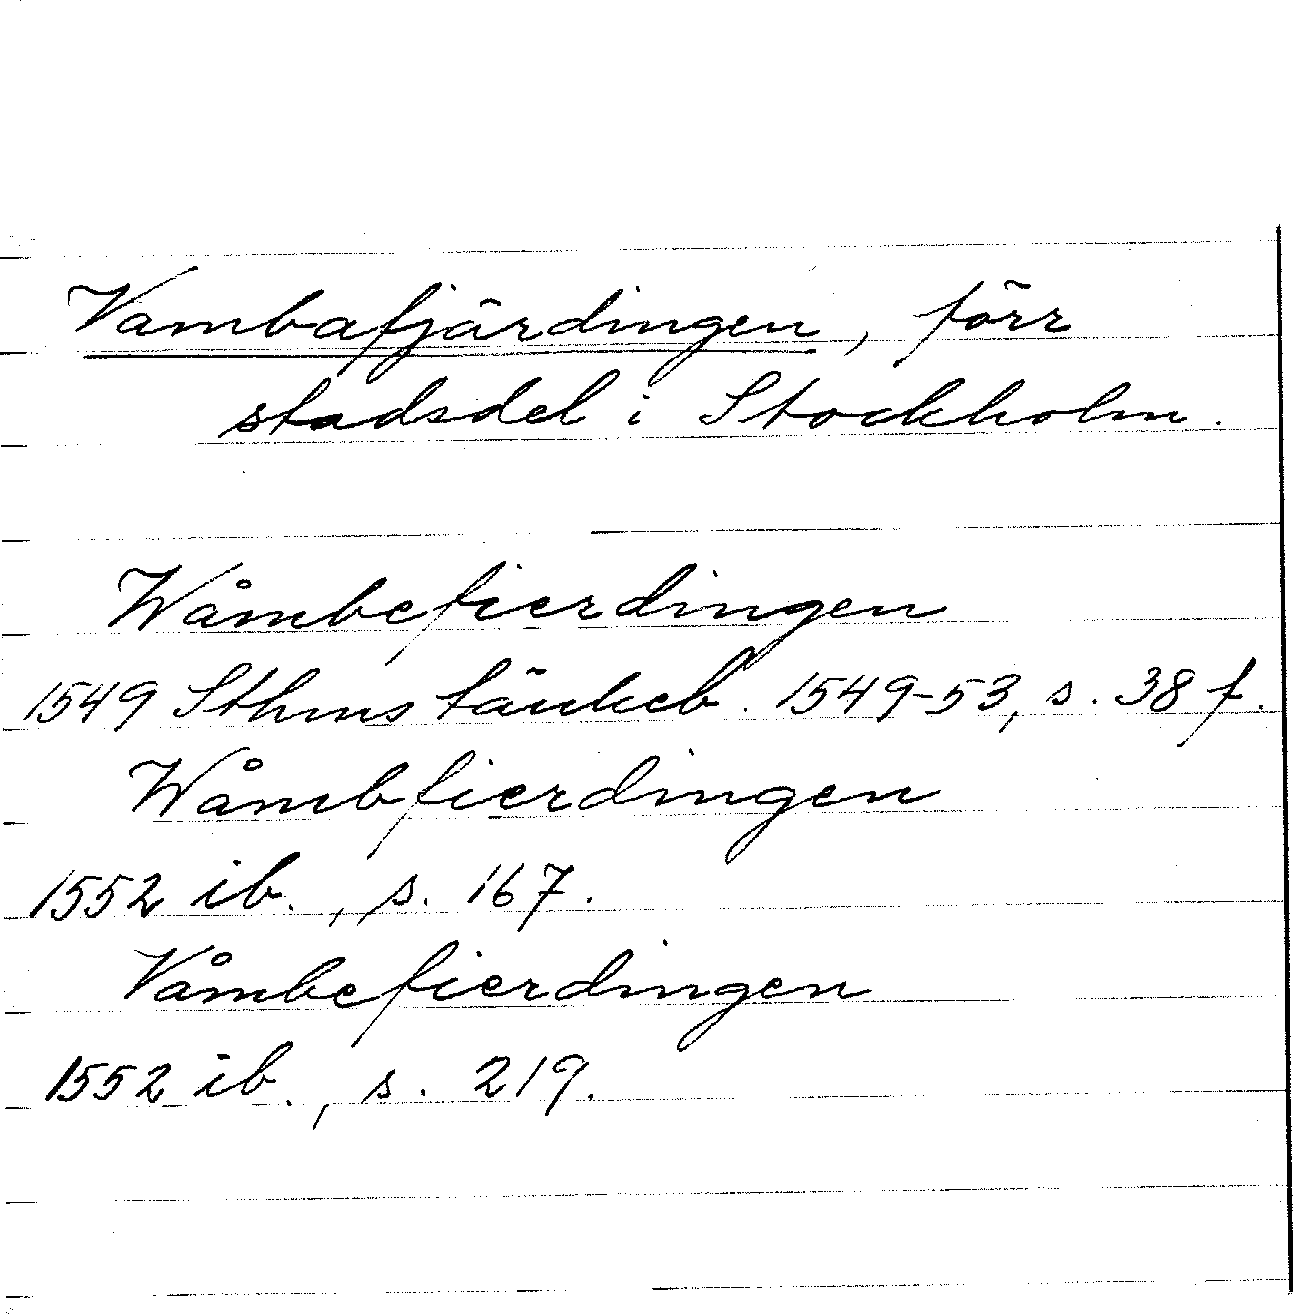 Vambafjärdingen, förr
stadsdel i Stockholm.
Wåmbefierdingen
1549 Sthms tänkeb. 1549-53, s. 38 f.
Wåmbfierdingen
1552 ib., s. 167.
Våmbefierdingen
1552 ib., s. 219.